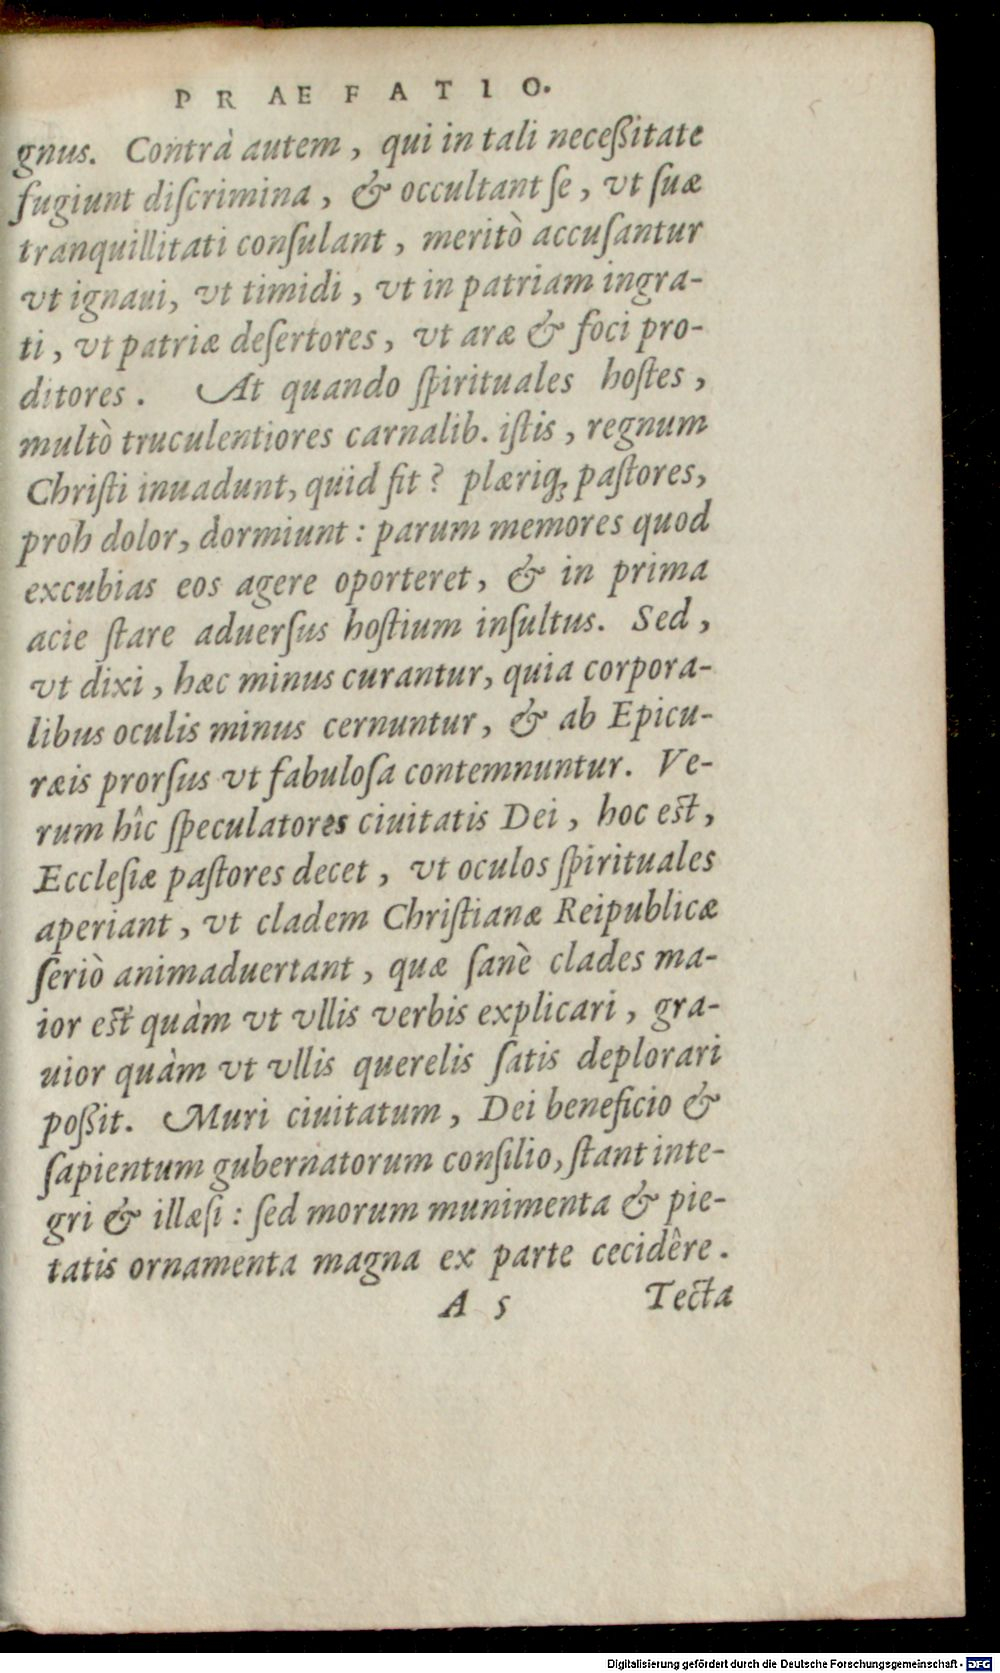 PRAEFATIO.
gnus. Contrà autem, qui in tali neceßitate
fugiunt diſcrimina, & occultant ſe, vt ſuæ
tranquillitati conſulant, meritò accuſantur
vt ignaui, vt timidi, vt in patriam ingra-
ti, vt patriæ deſertores, vt aræ & foci pro-
ditores. At quando ſpirituales hoſtes,
multò truculentiores carnalib. iſtis, regnum
Chriſti inuadunt, quid fit? plæriq; paſtores,
proh dolor, dormiunt: parum memores quod
excubias eos agere oporteret, & in prima
acie ſtare aduerſus hoſtium inſultus. Sed,
vt dixi, hæc minus curantur, quia corpora-
libus oculis minus cernuntur, & ab Epicu-
ræis prorſus vt fabuloſa contemnuntur. Ve-
rum hîc ſpeculatores ciuitatis Dei, hoc eſt,
Eccleſiæ paſtores decet, vt oculos ſpirituales
aperiant, vt cladem Chriſtianæ Reipublicæ
ſeriò animaduertant, quæ ſanè clades ma-
ior eſt quàm vt vllis verbis explicari, gra-
uior quàm vt vllis querelis ſatis deplorari
poßit. Muri ciuitatum, Dei beneficio &
ſapientum gubernatorum conſilio, ſtant inte-
gri & illæſi: ſed morum munimenta & pie-
tatis ornamenta magna ex parte cecidêre.
A 5 Tecta
Digitalisierung gefördert durch die Deutsche Forschungsgemeinschaft - DFG